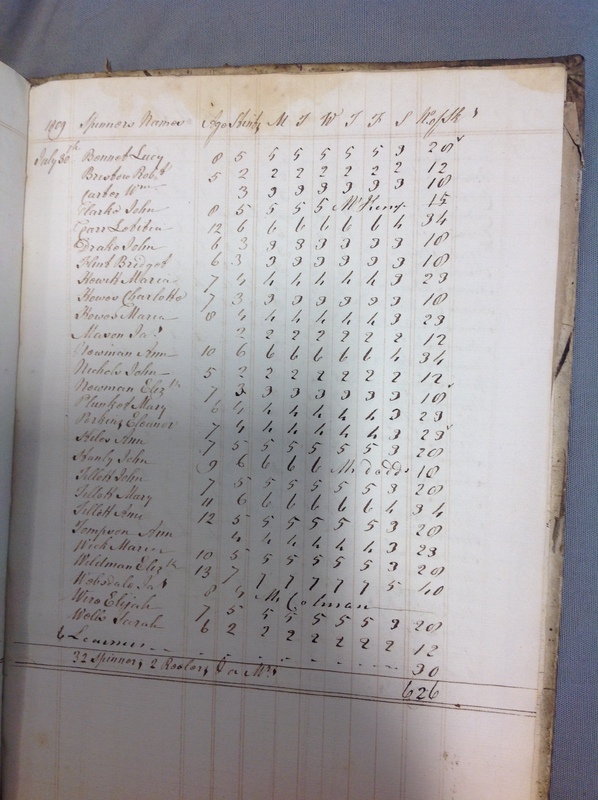 1809 Spinners Names Age Stint M T W T F S No. of Sk s
July 30th Bennet Lucy 8 5 5 5 5 5 5 3 28
Bristow Robt 5 2 2 2 2 2 2 2 12
Carter Wm 3 3 3 3 3 3 3 18
Clarke John 8 5 5 5 5 Mr Kemp 15
Carr Lobitea 12 6 6 6 6 6 6 4 34
Drake John 6 3 3 3 3 3 3 3 18
Flint Bridget 6 3 3 3 3 3 3 3 18
Hewitt Maria 7 4 4 4 4 4 4 3 23
Howes Charlotte 7 3 3 3 3 3 3 3 18
Howes Maria 8 4 4 4 4 4 4 3 23
Mason Jas 2 2 2 2 2 2 2 12
Newman Ann 10 6 6 6 6 6 6 4 34
Nichols John 5 2 2 2 2 2 2 2 12
Newman Elizth 7 3 3 3 3 3 3 3 18
Plunket Mary 6 4 4 4 4 4 4 3 23
Perkins Eleanor 7 4 4 4 4 4 4 3 23
Ann 7 5 5 5 5 5 5 3 28
John 9 6 6 6 6 Mr dodds 18
Tillott John 7 5 5 5 5 5 5 3 28
Tillott Mary 11 6 6 6 6 6 6 4 34
Tillott Ame 12 5 5 5 5 5 5 3 28
Tompson Ann 4 4 4 4 4 4 3 23
Wick Maria 10 5 5 5 5 5 5 3 28
Wildman Elizth 13 7 7 7 7 7 7 5 40
Jas 8 4 Mr Colman
Elijah 7 5 5 5 5 5 5 3 28
Wells Sarah 6 2 2 2 2 2 2 2 12
6 Learners 30
32 Spinners 2 Reelers 626